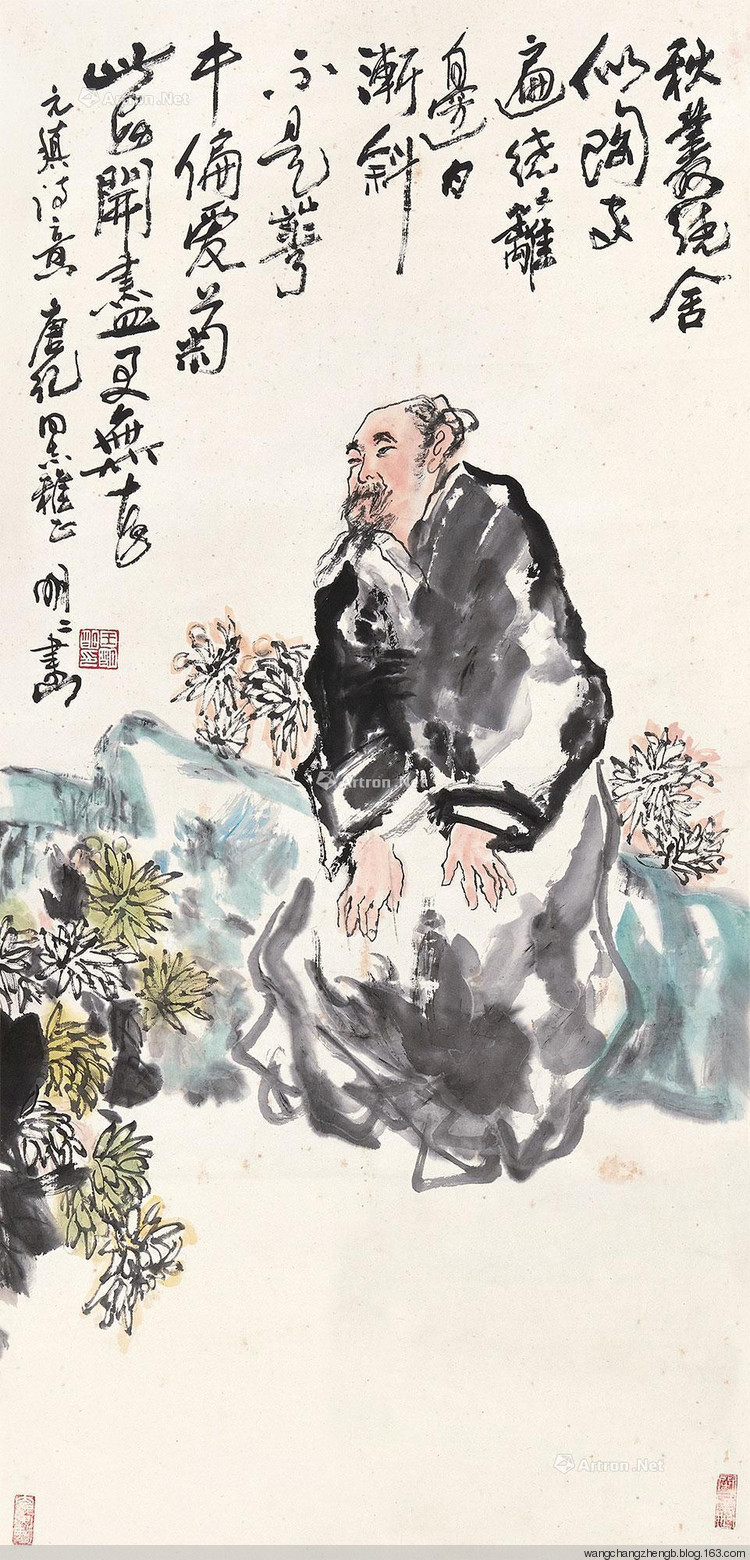 秋叢繞舍
似陶家
遍繞籬
邊日
漸斜
不是華
中偏愛菊
此花開盡更無花
元稹詩意 唐纪同志雅正 明明畫
Artron.Net
Artron.Net
Artron.Net
wangchangzhengb.blog.163.com